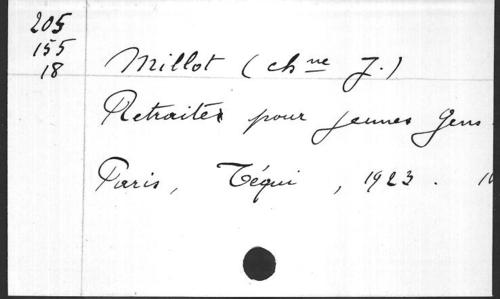 205
155
18
Millot (chne J.)
Retraites pour jeunes gens
Paris, Téqui, 1923.